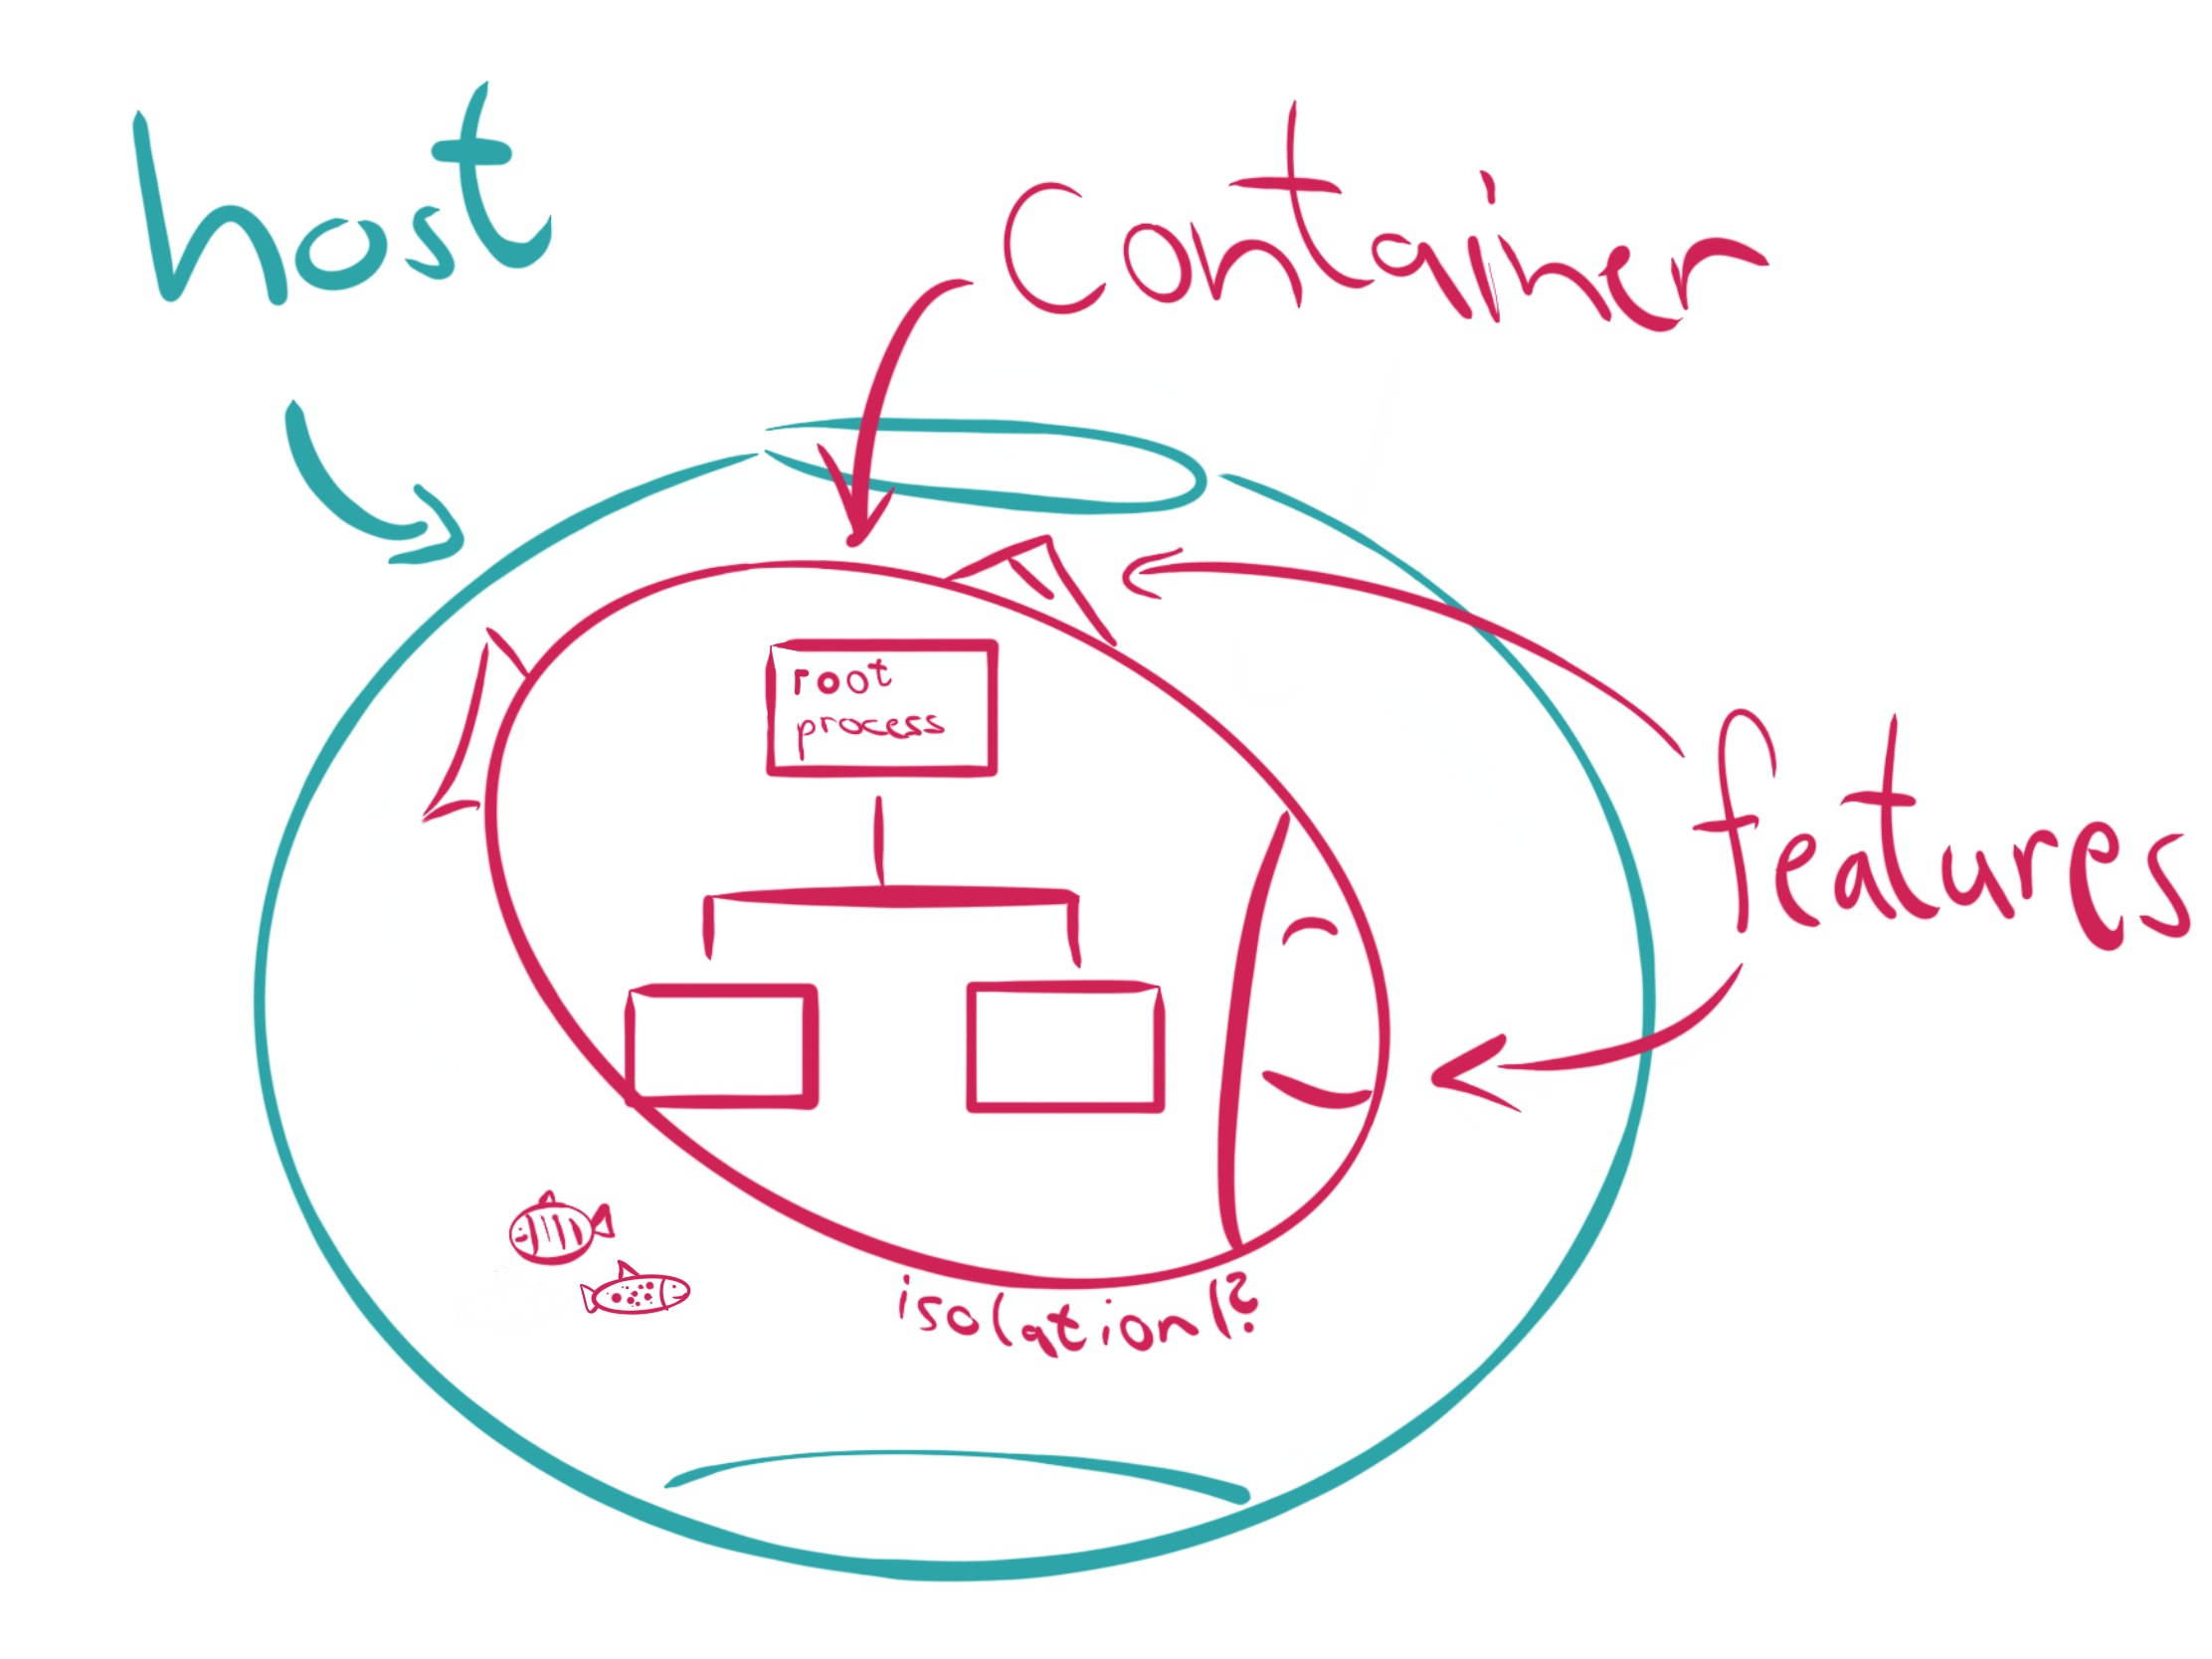 host
Container
root
process
features
isolation!?